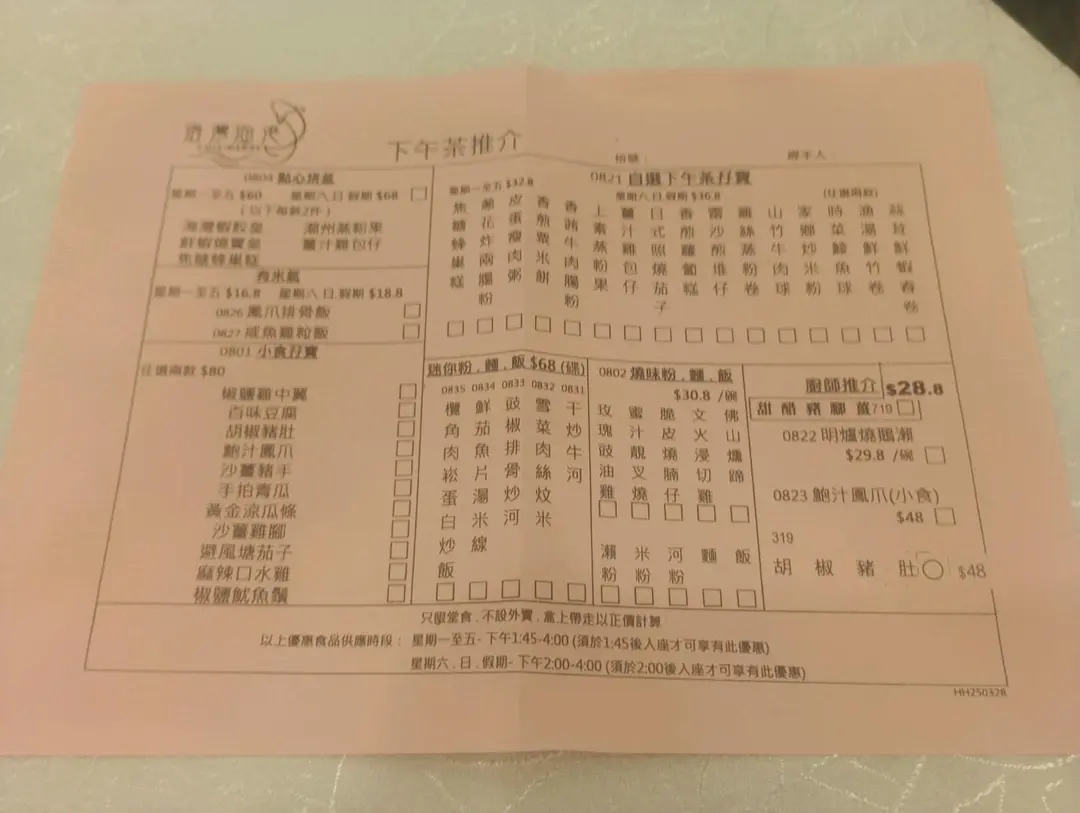 下午茶推介
枱號：
經手人：
0804 點心拼盤
星期一至五 $60 星期六.日.假期 $68
(以下每款2件)
海灣蝦餃皇 潮州蒸粉果
鮮蝦燒賣皇 薑汁雞包仔
焦糖蜂巢糕
有米氣
星期一至五 $16.8 星期六.日.假期 $18.8
0826 鳳爪排骨飯
0827 咸魚雞粒飯
0801 小食孖寶
任選兩款 $80
椒鹽雞中翼
百味豆腐
胡椒豬肚
鮑汁鳳爪
沙薑豬手
手拍青瓜
黃金涼瓜條
沙薑雞腳
避風塘茄子
麻辣口水雞
椒鹽魷魚鬚
0821 自選下午茶孖寶
星期一至五 $32.8 星期六.日.假期 $36.8 (任選兩款)
焦糖蜂巢糕
蔥花炸兩腸粉
皮蛋瘦肉粥
香煎粟米餅
香茜牛肉腸粉
上素蒸粉果
薑汁雞包仔
日式照燒茄子
香煎蘿蔔糕
雷沙煎堆仔
雞絲蒸粉卷
山竹牛肉球
家鄉炒米粉
時菜鯪魚球
漁湯鮮竹卷
絲苗鮮蝦春卷
迷你粉．麵．飯 $68 (碟)
0835 欖角肉崧蛋白炒飯
0834 鮮茄魚片湯米線
0833 豉椒排骨炒河
0832 雪菜肉絲炆米
0831 干炒牛河
0802 燒味粉．麵．飯
$30.8 /碗
玫瑰豉油雞
蜜汁靚叉燒
脆皮燒腩仔
文火浸切雞
佛山燻蹄
瀨粉
米粉
河粉
麵
飯
廚師推介 $28.8
甜醋豬腳薑 719
0822 明爐燒鵝瀨
$29.8 /碗
0823 鮑汁鳳爪(小食)
$48
319
胡椒豬肚 $48
只限堂食．不設外賣．盒上帶走以正價計算
以上優惠食品供應時段： 星期一至五- 下午1:45-4:00 (須於1:45後入座才可享有此優惠)
星期六．日．假期- 下午2:00-4:00 (須於2:00後入座才可享有此優惠)
HH250328